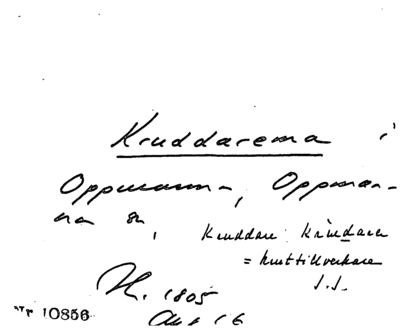 Kruddarema i
Oppmanna, Oppman-
na sn,
Kruddare: Krûddare
= kruttillverkare
J.J.
H. 1805
Akt 16
10856